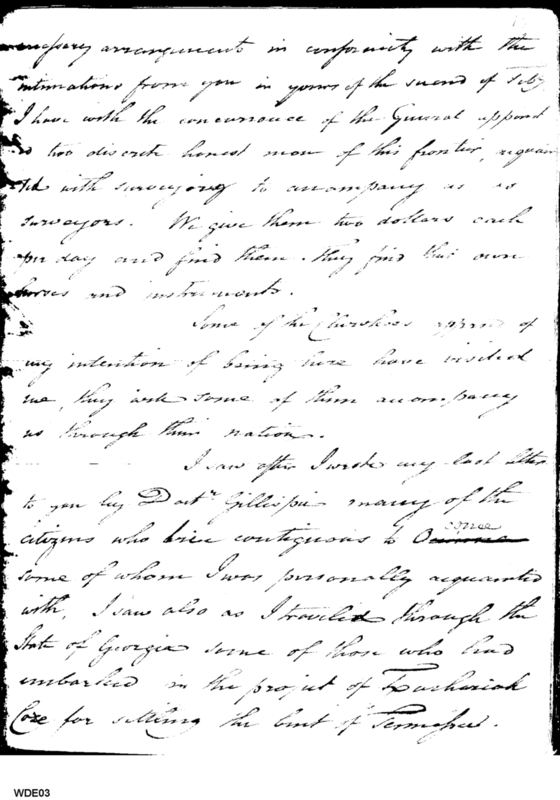 necessary arrangements in conformity with the
intimations from you in yours of the second of Feby
I have with the concurrance of the General appoint
ed two discrete honest men of this frontier, acquain
ted with surveying to accompany us as
surveyors. We give them two dollars each
per day and find them. they find their own
horses and instruments.
Some of the Cherokees apprised of
my intention of being here have visited
me, they with some of them accompany
us through their nation.
I saw after I wrote my last letter
to you by Doctr. Gillispie many of the
citizens who live contiguous to O
conee
some of whom I was personally acquainted
with, I saw also as I traveled through the
State of Georgia some of those who had
embarked in the project of Zachariah
Coxe for settling the bent of Tennessee.
WDE03